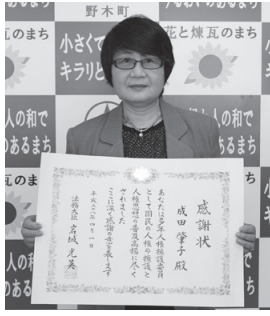 野木町
花と煉瓦のまち
小さくて
キラリと
人の和で
のあるまち
感謝状
成田肇子殿
あなたは多年人権擁護委員
として国民の人権の擁護と
人権思想の普及高揚に尽く
されました
ここに深く感謝の意を表します
平成二十八年四月一日
法務大臣 岩城光英